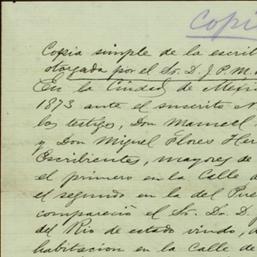 Copi
Copia simple de la escrit
otorgada por el Sr. D. J. P. M.
En la Ciudad de Méjic
1873 ante el suscrito N
los testigos, Don Manuel
y Don Miguel Flores Her
Escribientes, mayores de
el primero en la Calle d
el segundo en la del Pue
compareció el Sr. Dn. D.
del Rio de estado viudo,
habitacion en la Calle de